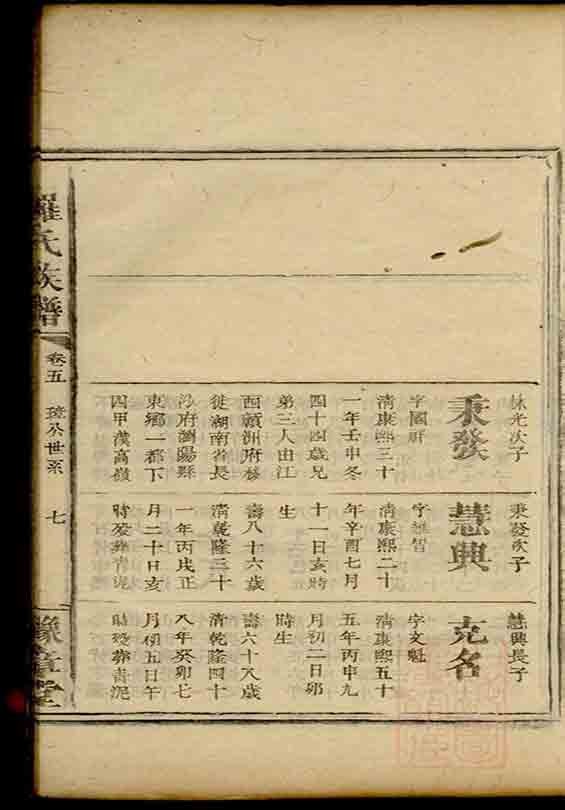 羅氏族譜
卷五 璟公世系 七
豫章堂
林光次子
秉發
字國
清康熙三十
一年壬申冬
四十四歲兄
弟三人由江
西贛洲府
徙湖南省長
沙府瀏陽縣
東鄉一都下
四甲漢高嶺
秉發次子
慧典
字 智
清康熙二十
年辛酉七月
十一日亥時
生
壽八十六歲
清乾隆三十
一年丙戌正
月二十日亥
時歿葬青泥
慧典長子
克名
字文魁
清康熙五十
五年丙申九
月初二日卯
時生
壽六十八歲
清乾隆四十
八年癸卯七
月初五日午
時歿葬青泥